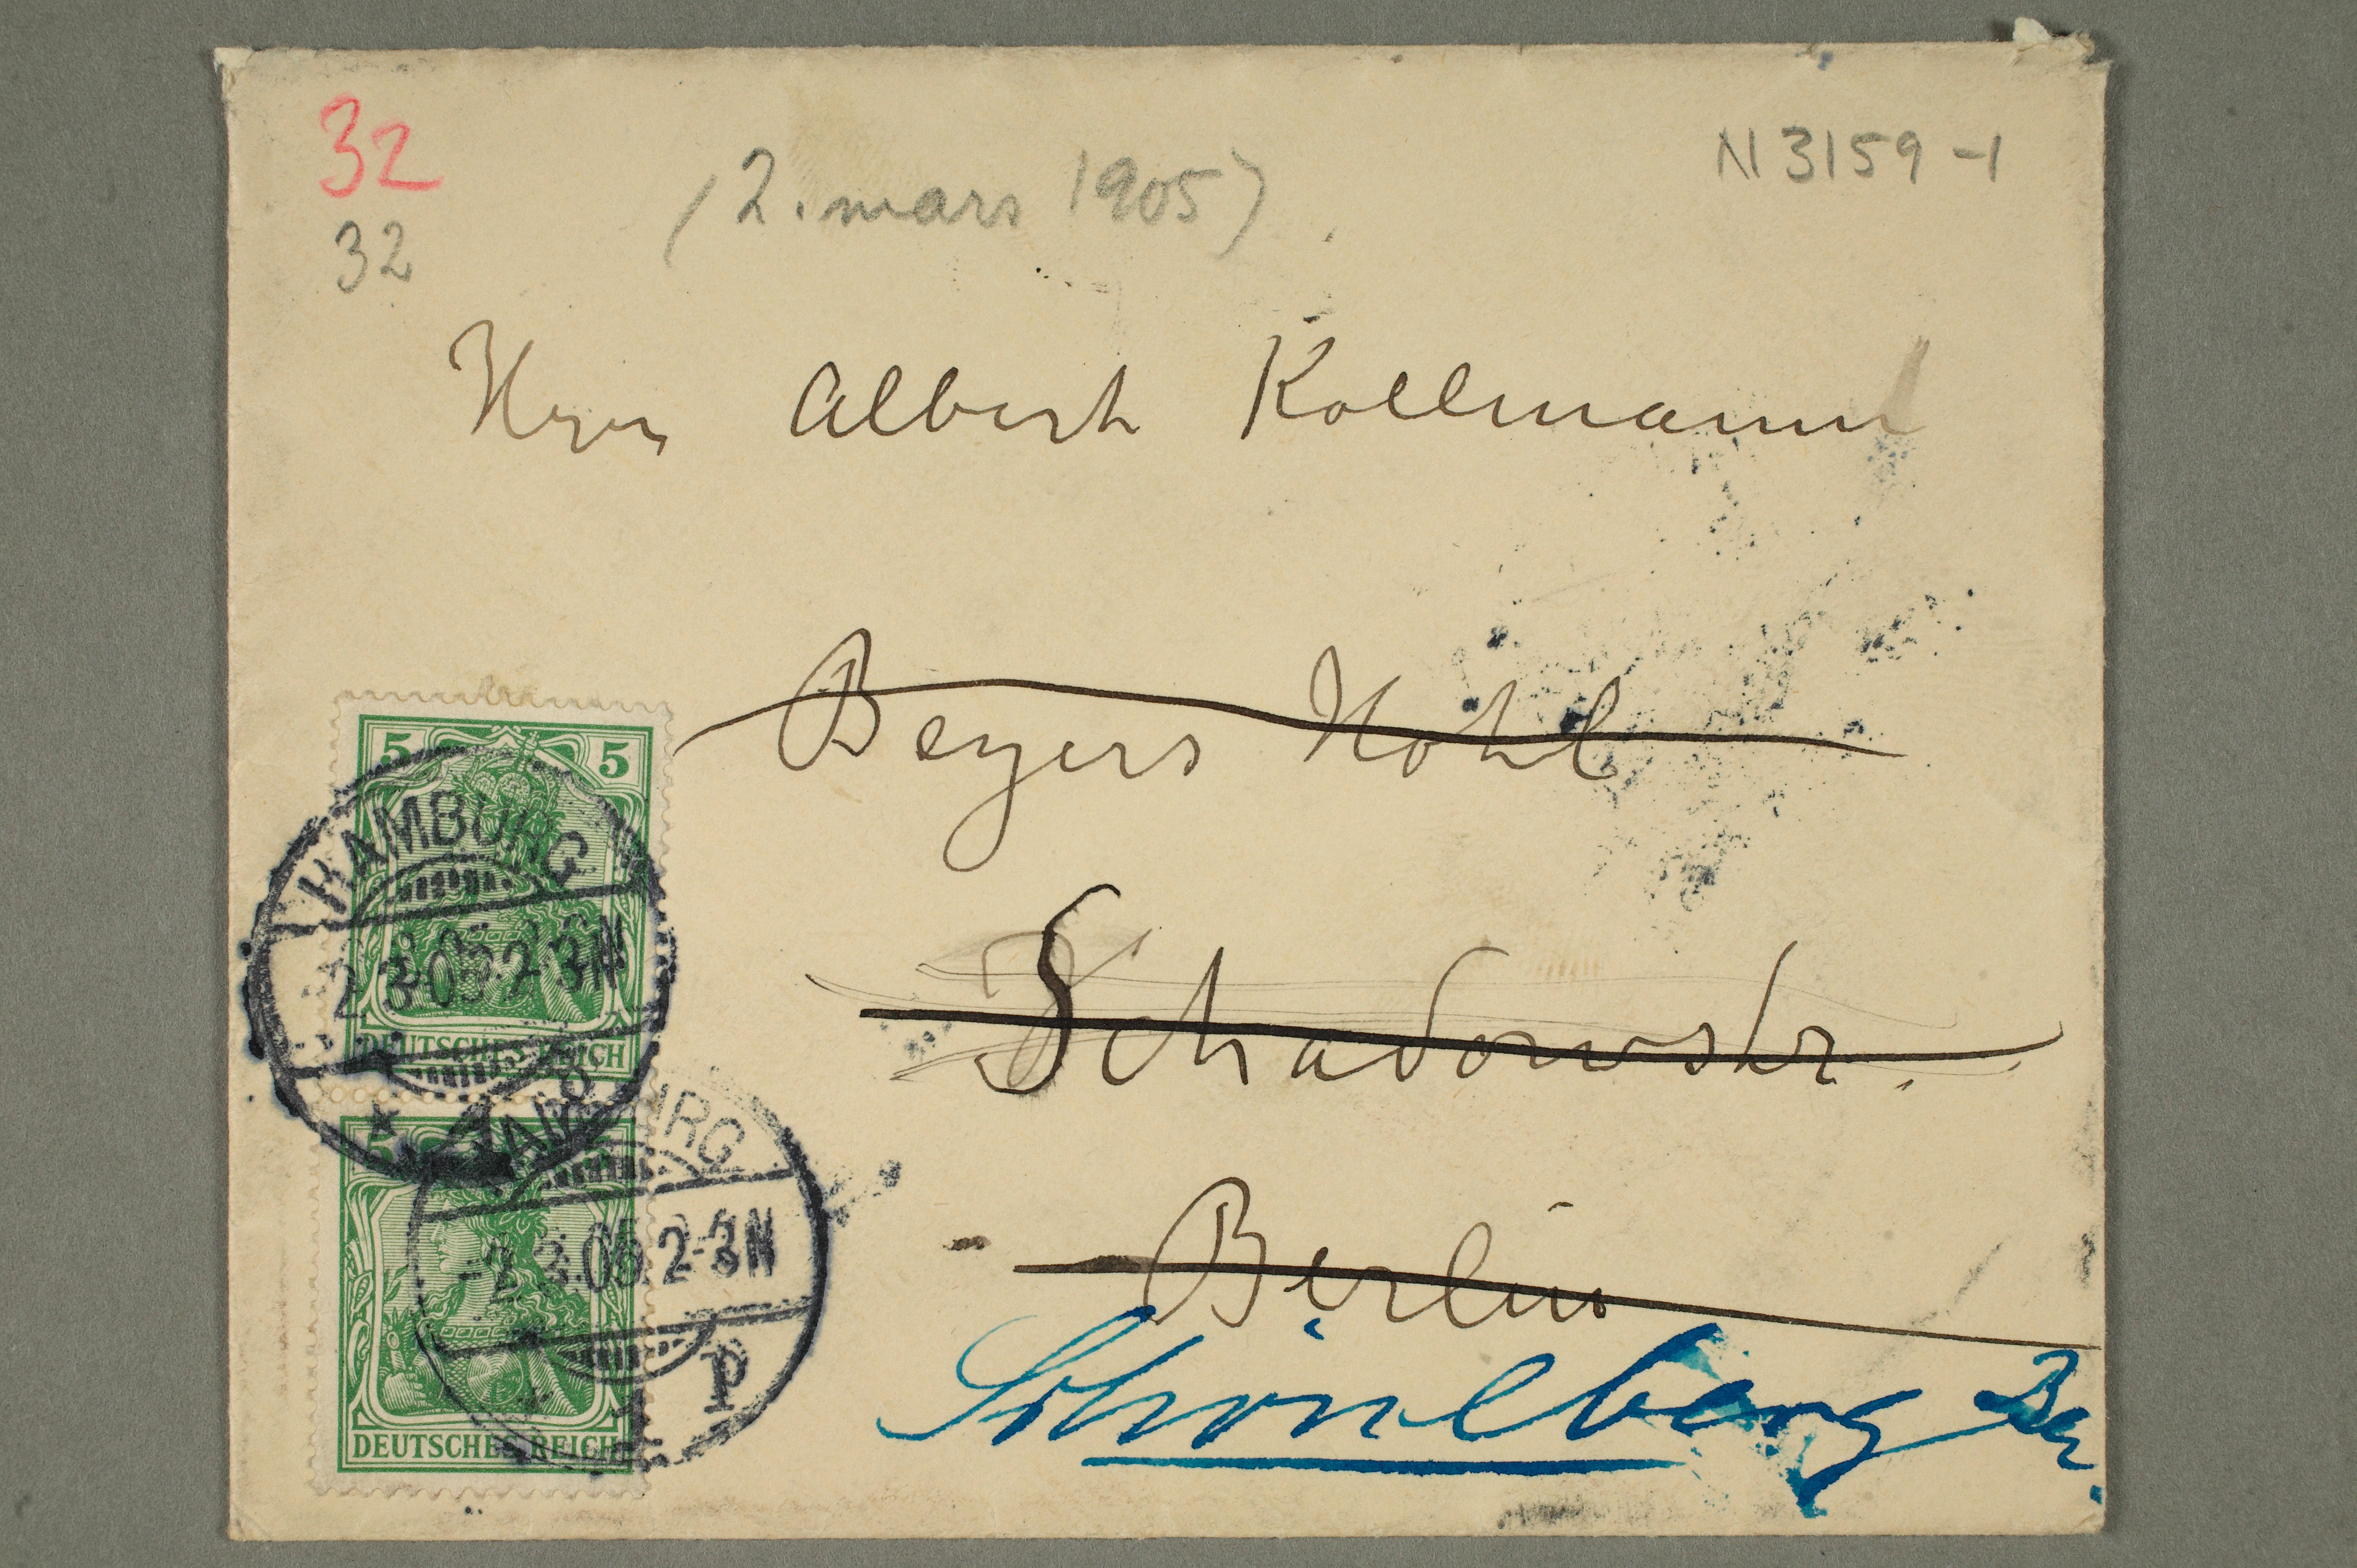 32
32
(2. mars 1905)
N 3159-1
Herrn Albert Kollmann
Beyers Hotel
Schadowstr.
Berlin
Schöneberg Ber.
5 5
HAMBURG
2.3.05.2-3N
DEUTSCHES REICH
5
HAMBURG
-2.3.05.2-3N
1 P
DEUTSCHES REICH